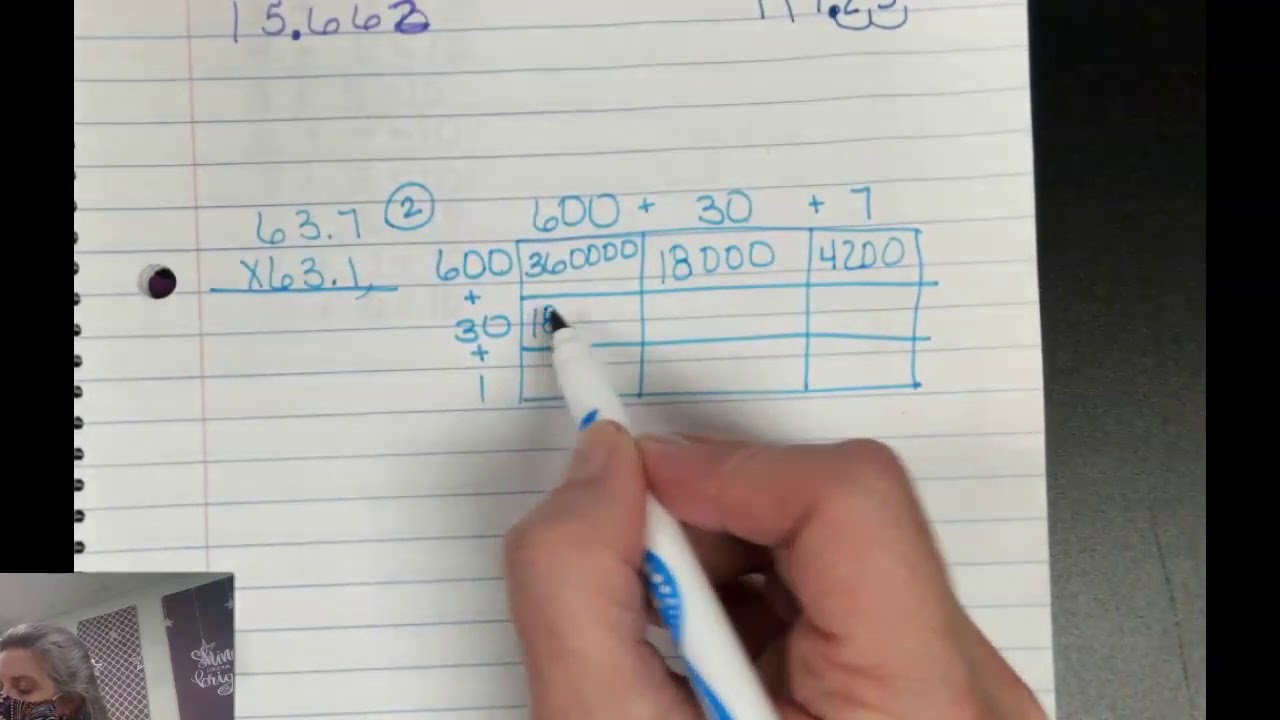 15.662
63.7 ②
×63.1
600 + 30 + 7
600 360000 18000 4200
+
30 18
+
1
Shine
bright